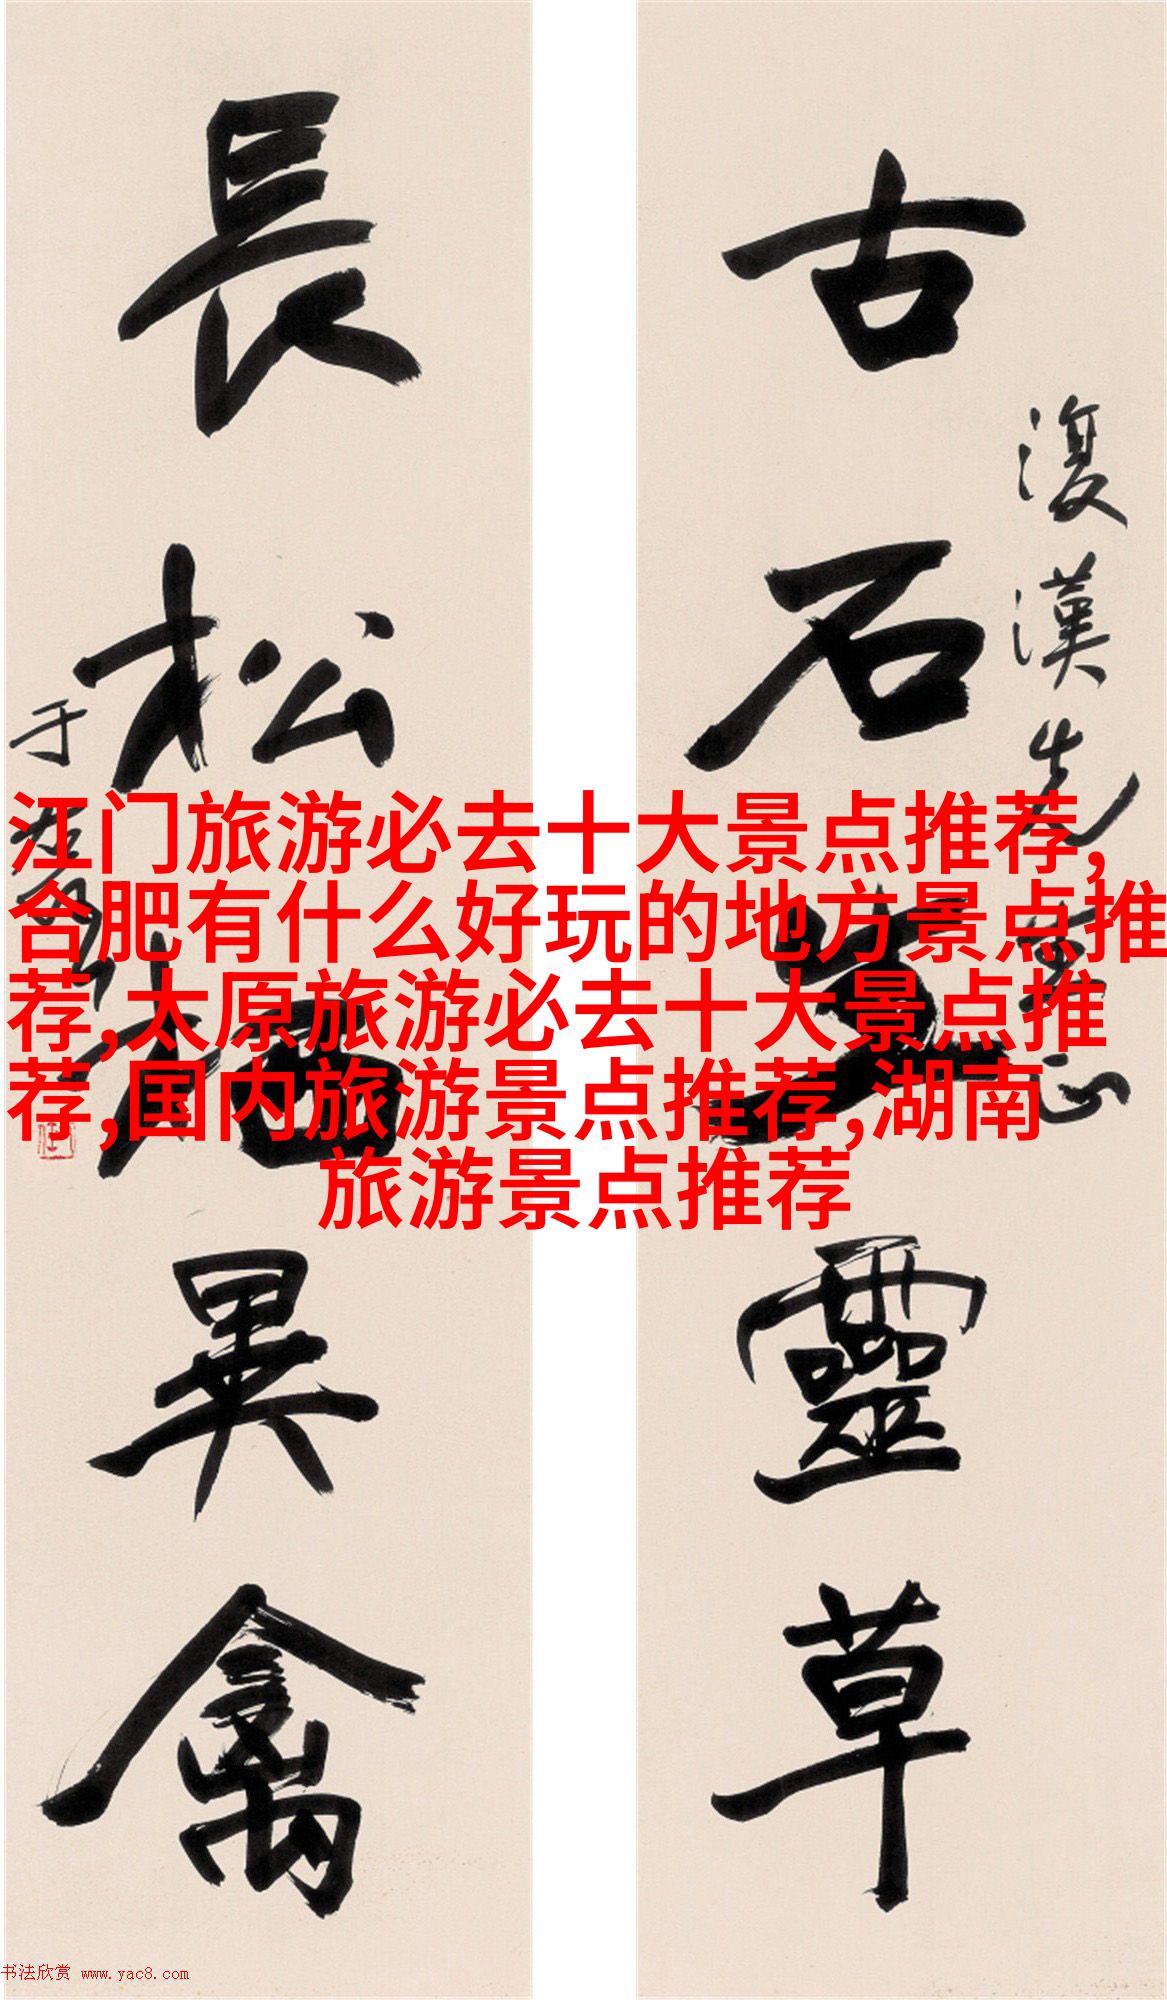 古石生靈草
復漢先生正
長松栖異禽
于右任
江门旅游必去十大景点推荐,
合肥有什么好玩的地方景点推
荐,太原旅游必去十大景点推
荐,国内旅游景点推荐,湖南
旅游景点推荐
书法欣赏 www.yac8.com